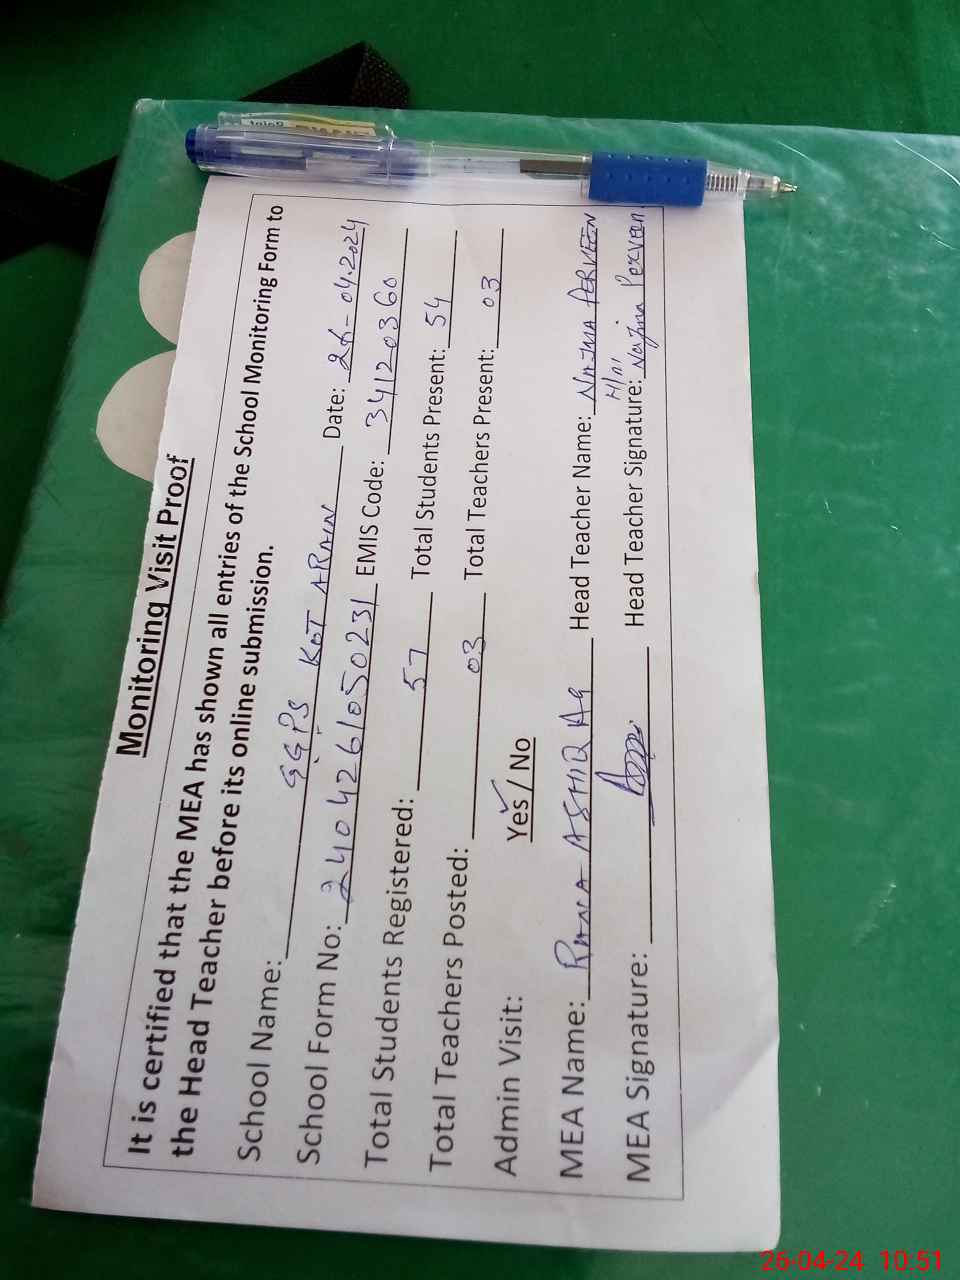 Monitoring Visit Proof
It is certified that the MEA has shown all entries of the School Monitoring Form to
the Head Teacher before its online submission.
School Name: GGPS KOT ARAIN Date: 26-04.2024
School Form No: 2404261050231 EMIS Code: 34120360
Total Students Registered: 57 Total Students Present: 54
Total Teachers Posted: 03 Total Teachers Present: 03
Admin Visit: Yes / No
MEA Name: RANA ASHIQ Head Teacher Name: NAJMA PERVEEN
MEA Signature: Head Teacher Signature: Najma Perveen
26-04-24 10:51